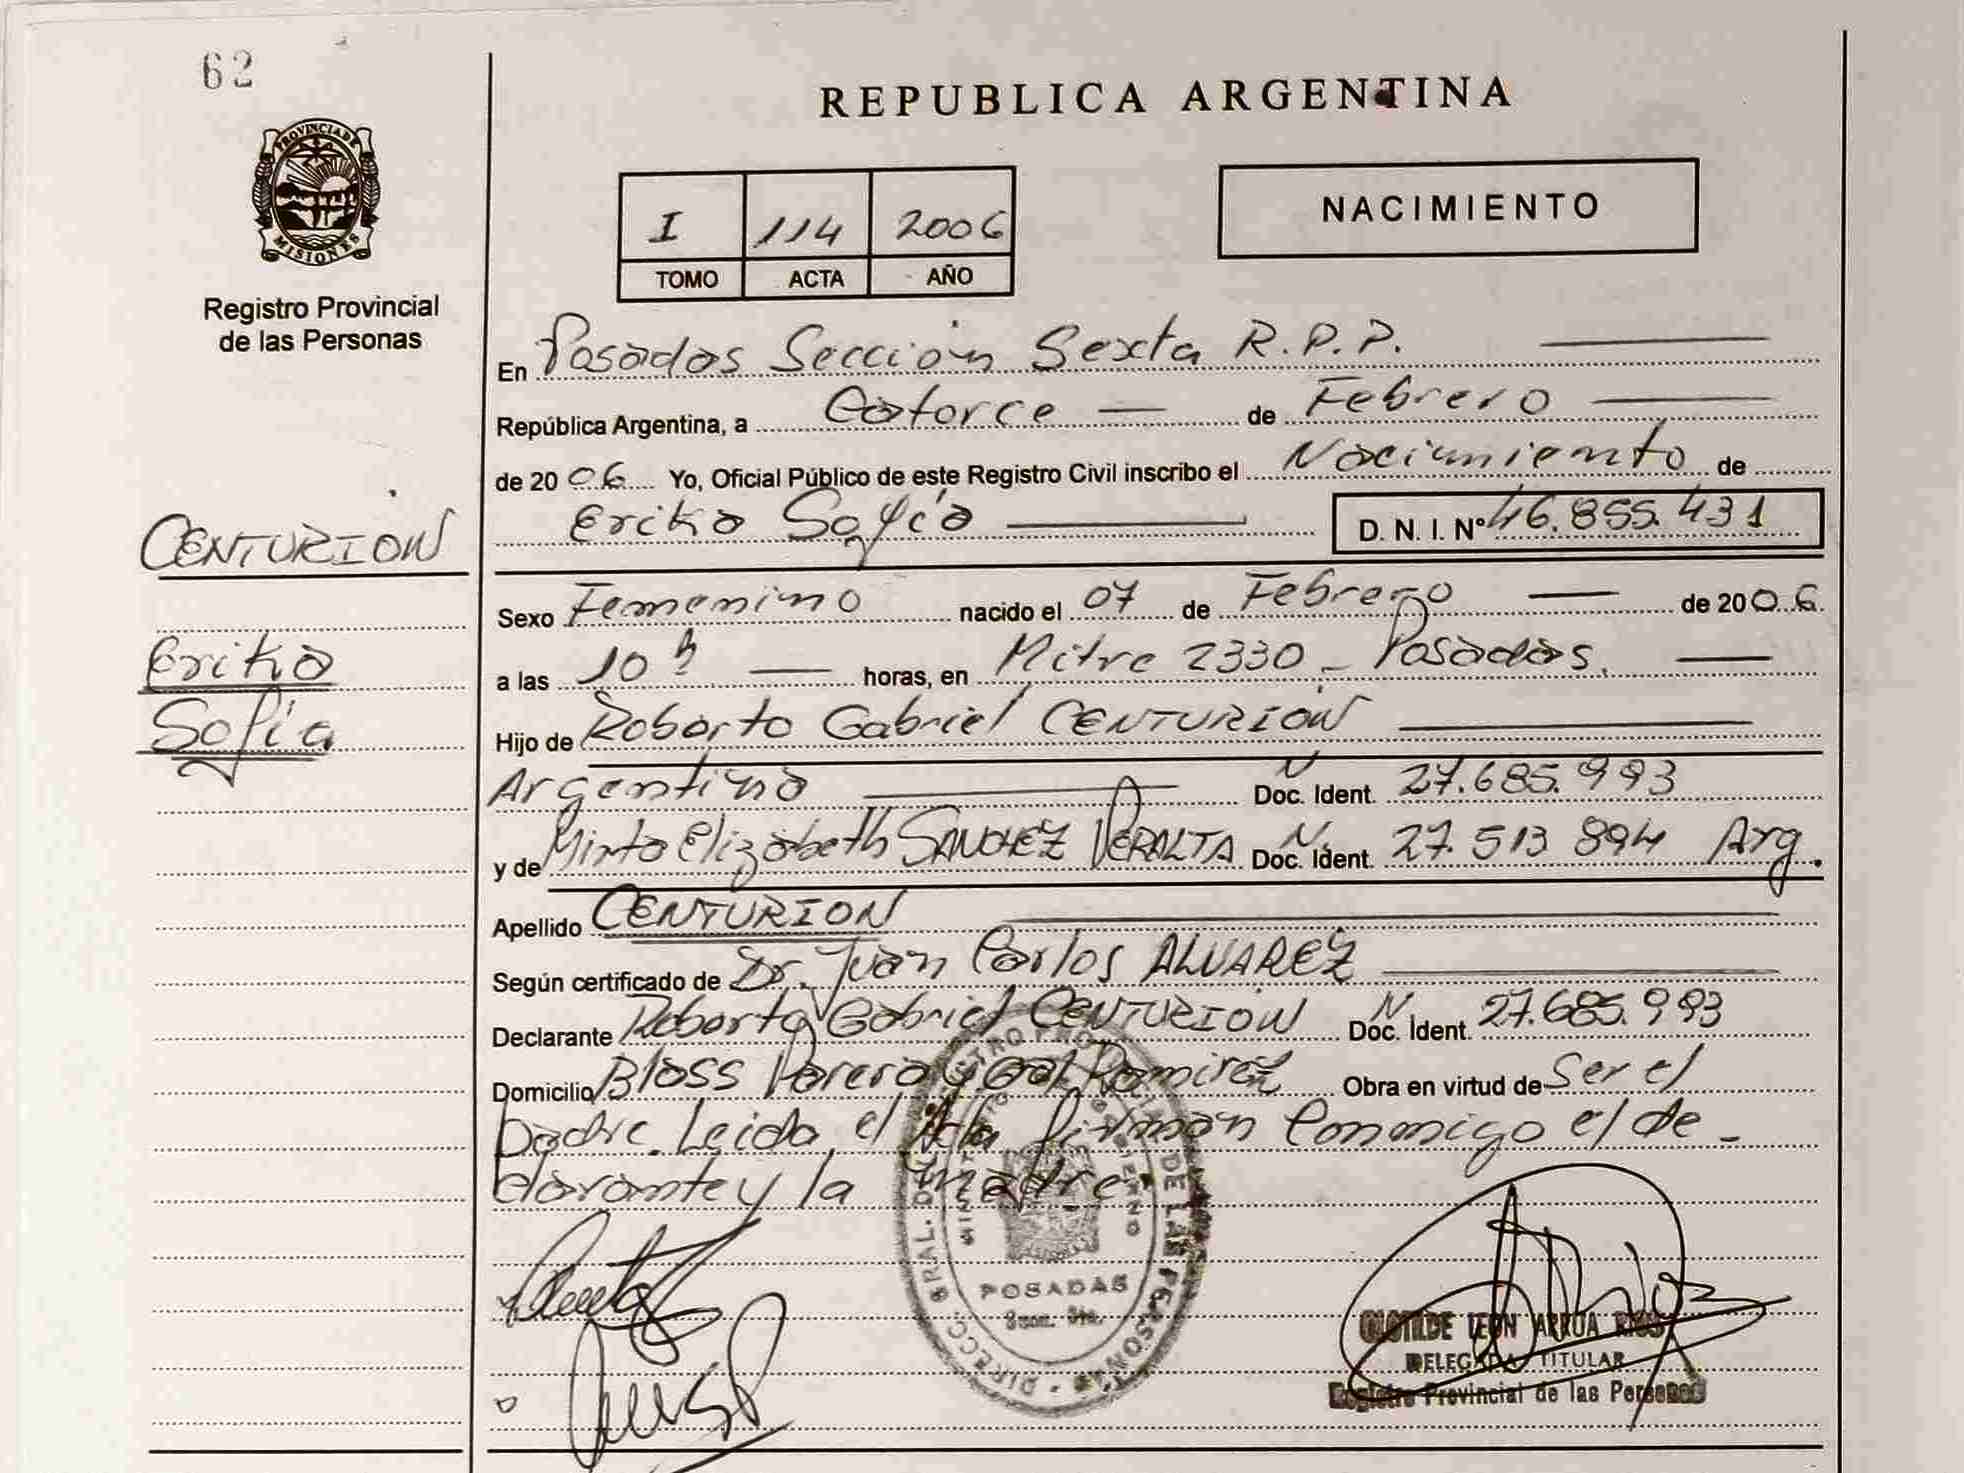 62
REPUBLICA ARGENTINA
PROVINCIA DE
MISIONES
Registro Provincial
de las Personas
I 114 2006
TOMO ACTA AÑO
NACIMIENTO
En Posadas Sección Sexta R.P.P.
República Argentina, a Catorce de Febrero
de 2006 Yo, Oficial Público de este Registro Civil inscribo el Nacimiento de
Erika Sofía D. N. I. Nº 46.855.431
CENTURIÓN
Erika
Sofía
Sexo Femenino nacido el 07 de Febrero de 2006.
a las 10 h horas, en Mitre 2330 - Posadas.
Hijo de Roberto Gabriel CENTURIÓN
Argentino Doc. Ident. N 27.685.993
y de Mirta Elizabeth SANCHEZ PERALTA Doc. Ident. N 27.513 894 Arg.
Apellido CENTURION
Según certificado de Dr. Juan Carlos ALVAREZ
Declarante Roberto Gabriel CENTURIÓN Doc. Ident. N 27.685.993
Domicilio Bloss Parera y Gol Ramirez Obra en virtud de Ser el
padre. Leida el Acta firman Conmigo el de-
clarante y la madre
DIRECC. GRAL. DEL REGISTRO PROVINCIAL DE LAS PERSONAS
POSADAS
Secc. 6ta.
CLOTILDE LEON ARRUA RIOS
DELEGADA TITULAR
Registro Provincial de las Personas